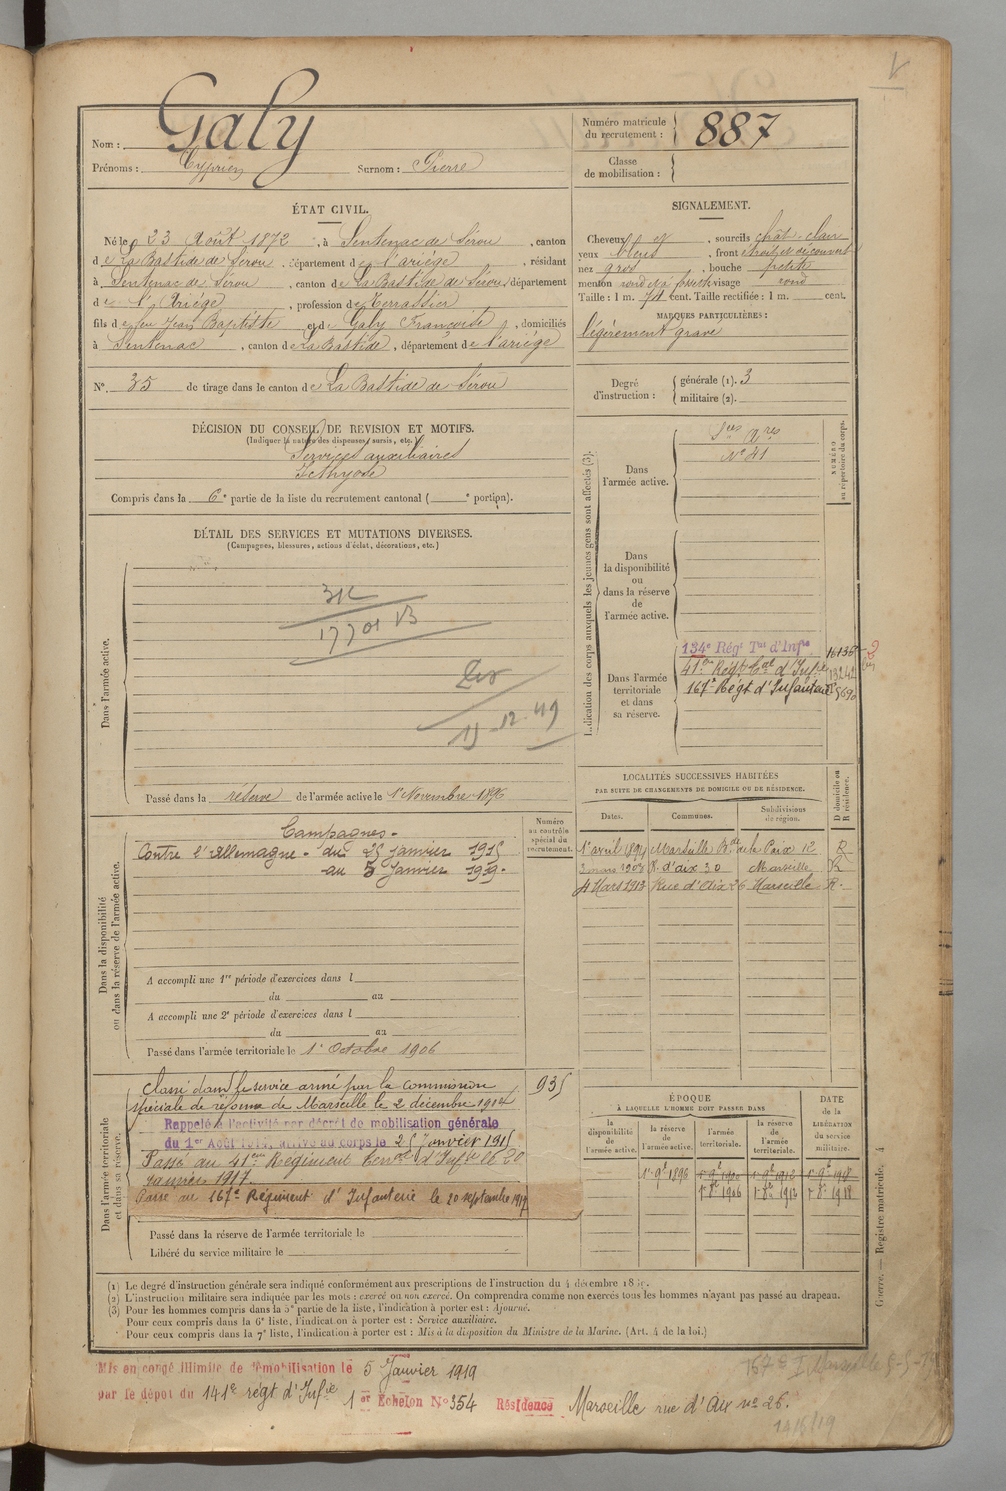 Nom : Galy
Prénoms : Cyprien Surnom : Pierre
Numéro matricule du recrutement : 887
Classe de mobilisation :
ÉTAT CIVIL.
Né le 23 Août 1872, à Sentenac de Sérou, canton
de La Bastide de Sérou, département de l'ariège, résidant
à Sentenac de Sérou, canton de La Bastide de Sérou, département
de l'Ariège, profession de Terrassier
fils de feu Jean Baptiste et de Galy Françoise, domiciliés
à Sentenac, canton de La Bastide, département de l'ariège
N° 35 de tirage dans le canton de La Bastide de Sérou
SIGNALEMENT.
Cheveux et sourcils chât. clair
yeux bleus, front étroit et découvert
nez gros, bouche petite
menton rond et à fossette visage rond
Taille : 1 m. 71 cent. Taille rectifiée : 1 m. cent.
MARQUES PARTICULIÈRES :
légèrement gravé
Degré d'instruction : générale (1). 3
militaire (2).
DÉCISION DU CONSEIL DE REVISION ET MOTIFS.
(Indiquer la nature des dispenses, sursis, etc.)
Services auxiliaires
Icthyose
Compris dans la 6e partie de la liste du recrutement cantonal ( e portion).
DÉTAIL DES SERVICES ET MUTATIONS DIVERSES.
(Campagnes, blessures, actions d'éclat, décorations, etc.)
Dans l'armée active.
13-12-49
Passé dans la réserve de l'armée active le 1er Novembre 1896
Indication des corps auxquels les jeunes gens sont affectés (3).
NUMÉRO au répertoire du corps.
Dans l'armée active.
N° 41
Dans la disponibilité ou dans la réserve de l'armée active.
Dans l'armée territoriale et dans sa réserve.
134e Régt Tal d'Infie
41e Régt Tal d'Infie
167e Régt d'Infanterie
LOCALITÉS SUCCESSIVES HABITÉES
PAR SUITE DE CHANGEMENTS DE DOMICILE OU DE RÉSIDENCE.
D domicile ou R résidence.
Dates. Communes. Subdivisions de région.
1er avril 1897 Marseille Bd de la Paix 12 R
3 mars 1903 R. d'aix 30 Marseille R
4 Mars 1913 Rue d'Aix 26 Marseille R.
Dans la disponibilité ou dans la réserve de l'armée active.
Numéro au contrôle spécial du recrutement.
Campagnes.
Contre l'Allemagne - du 25 janvier 1915
au 5 Janvier 1919.
A accompli une 1re période d'exercices dans l
du au
A accompli une 2e période d'exercices dans l
du au
Passé dans l'armée territoriale le 1er Octobre 1906
Dans l'armée territoriale et dans sa réserve.
935
Classé dans le service armé par la commission
spéciale de réforme de Marseille le 2 décembre 1914
Rappelé à l'activité par décret de mobilisation générale
du 1er Août 1914, arrivé au corps le 25 Janvier 1915
Passé au 41eme Régiment Terral d'Infie le 20
Janvier 1917.
Passé au 167e Régiment d'Infanterie le 20 septembre 1917
Passé dans la réserve de l'armée territoriale le
Libéré du service militaire le
ÉPOQUE
À LAQUELLE L'HOMME DOIT PASSER DANS
la disponibilité de l'armée active. la réserve de l'armée active. l'armée territoriale. la réserve de l'armée territoriale.
DATE de la LIBÉRATION du service militaire.
(1) Le degré d'instruction générale sera indiqué conformément aux prescriptions de l'instruction du 4 décembre
(2) L'instruction militaire sera indiquée par les mots : exercé ou non exercé. On comprendra comme non exercés tous les hommes n'ayant pas passé au drapeau.
(3) Pour les hommes compris dans la 5e partie de la liste, l'indication à porter est : Ajourné.
Pour ceux compris dans la 6e liste, l'indication à porter est : Service auxiliaire.
Pour ceux compris dans la 7e liste, l'indication à porter est : Mis à la disposition du Ministre de la Marine. (Art. 4 de la loi.)
Guerre. — Registre matricule. 4
Mis en congé illimité de démobilisation le 5 Janvier 1919
par le dépôt du 141e régt d'Infie 1er Echelon N° 354 Résidence Marseille rue d'Aix n° 26.